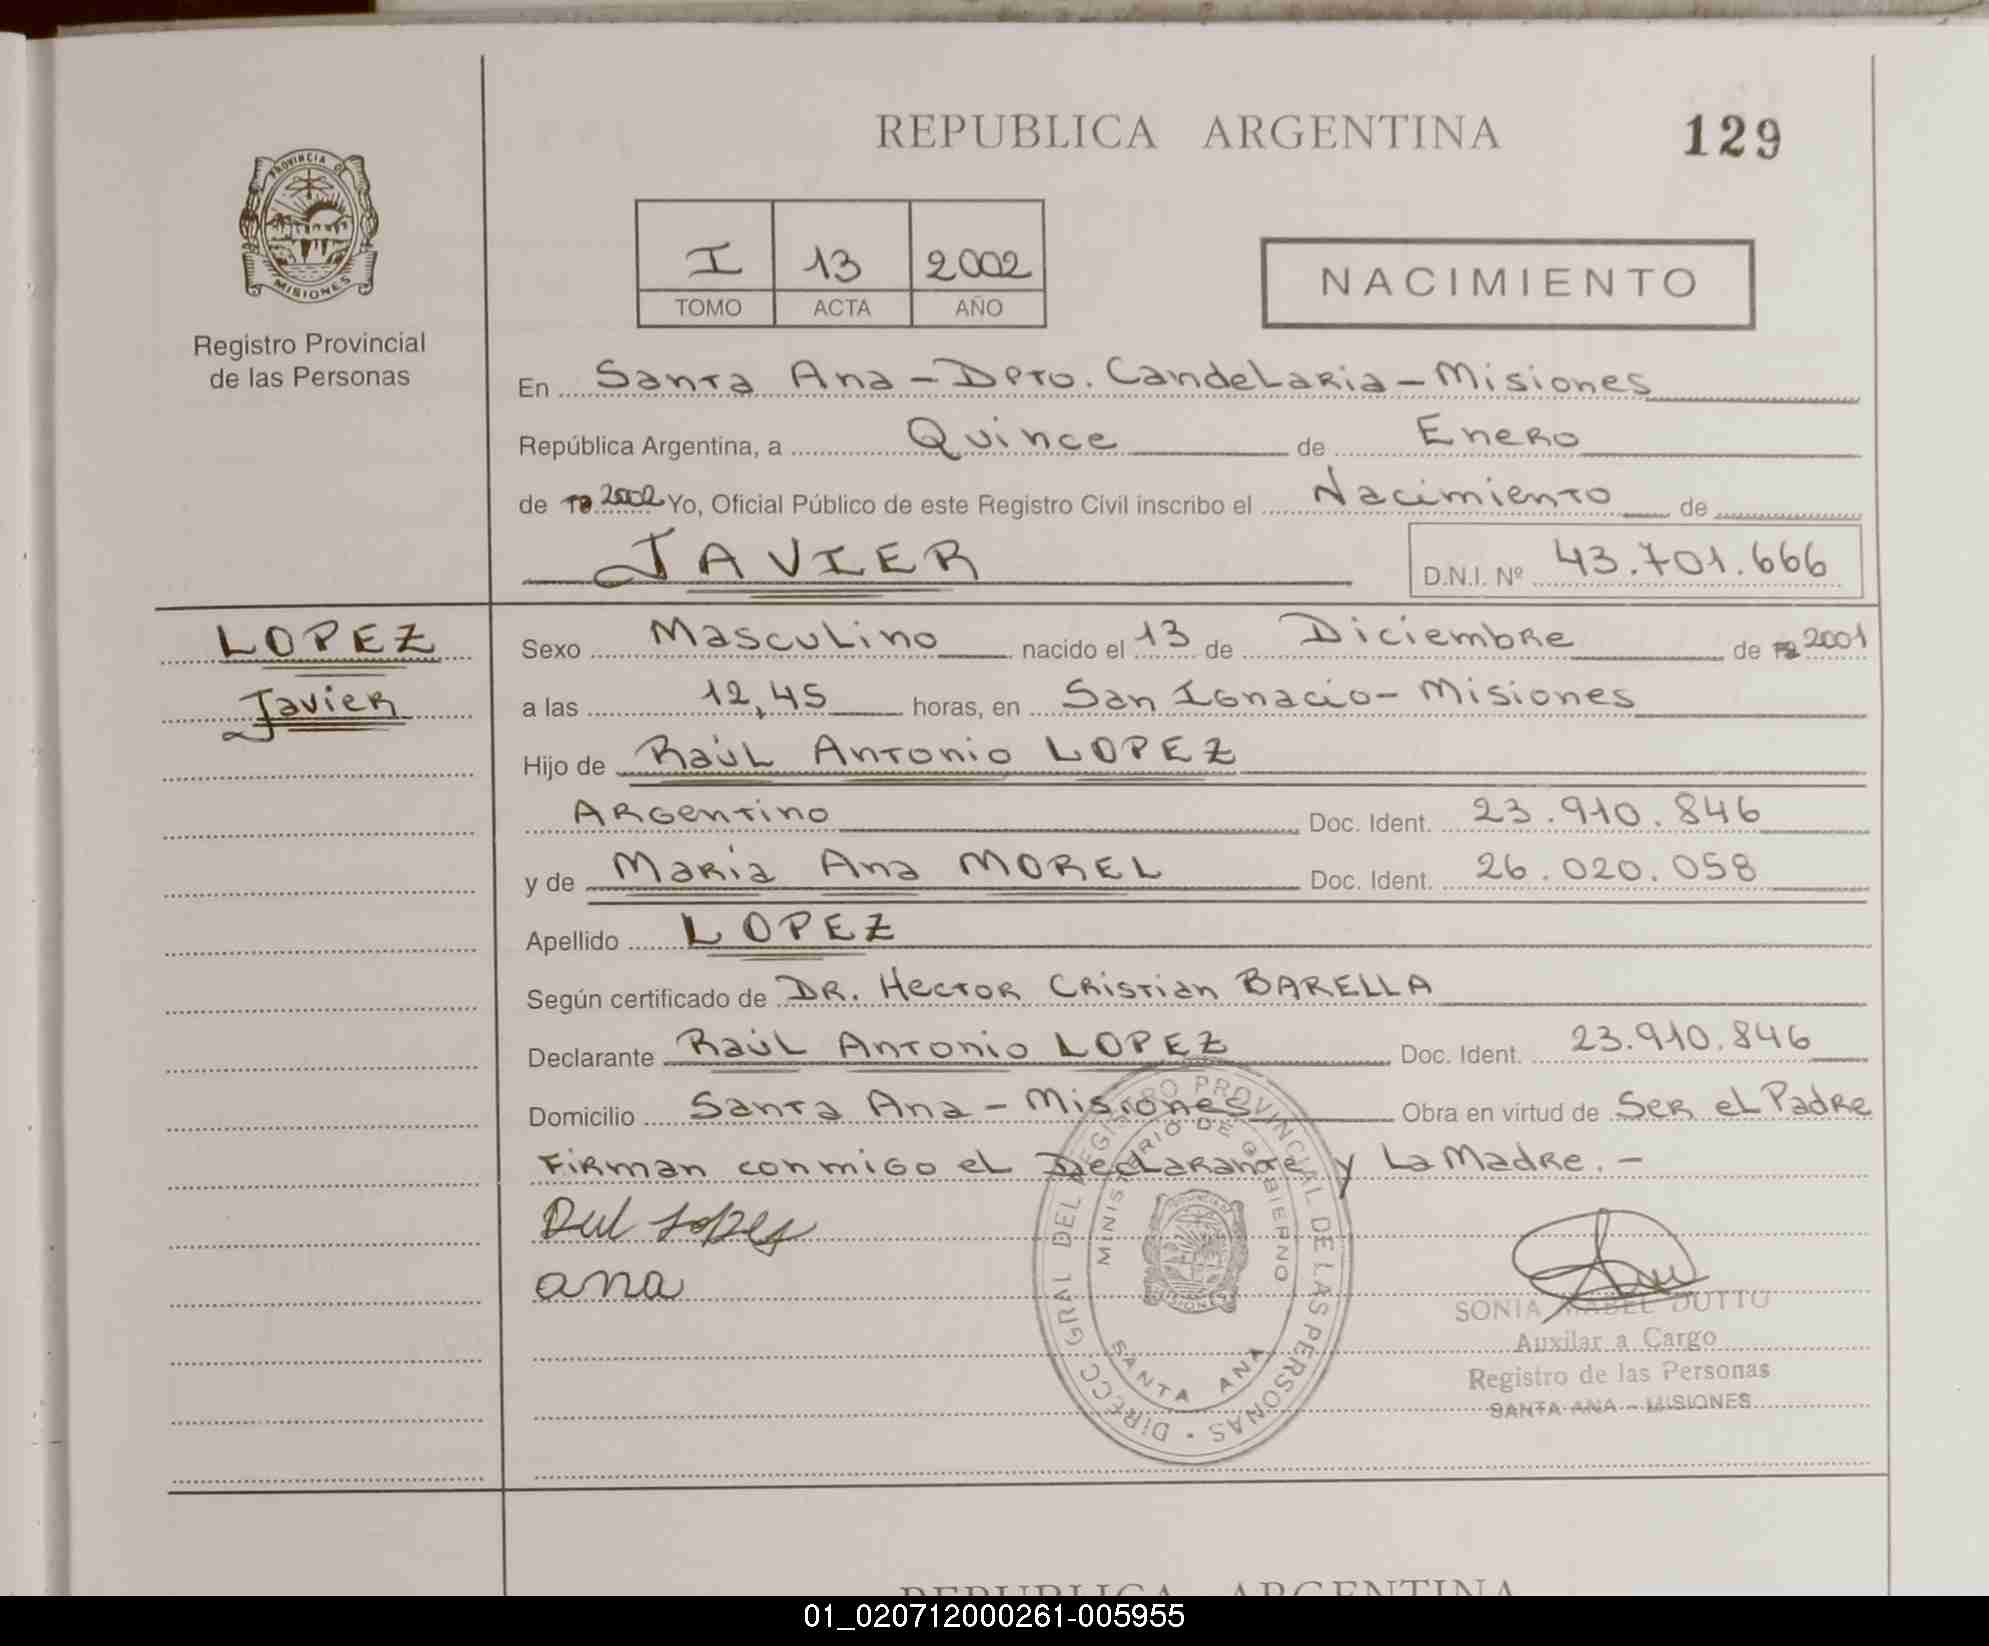 REPUBLICA ARGENTINA
129
PROVINCIA DE
MISIONES
Registro Provincial
de las Personas
I 13 2002
TOMO ACTA AÑO
NACIMIENTO
En Santa Ana - Dpto. Candelaria - Misiones
República Argentina, a Quince de Enero
de 2002 Yo, Oficial Público de este Registro Civil inscribo el Nacimiento de
JAVIER D.N.I. Nº 43.701.666
LOPEZ
Javier
Sexo Masculino nacido el 13 de Diciembre de 2001
a las 12,45 horas, en San Ignacio - Misiones
Hijo de Raúl Antonio LOPEZ
Argentino Doc. Ident. 23.910.846
y de María Ana MOREL Doc. Ident. 26.020.058
Apellido LOPEZ
Según certificado de DR. Hector Cristian BARELLA
Declarante Raúl Antonio LOPEZ Doc. Ident. 23.910.846
Domicilio Santa Ana - Misiones Obra en virtud de Ser el Padre
Firman conmigo el Declarante y La Madre. -
Lopes
ana
DIRECC GRAL DEL REGISTRO PROVINCIAL DE LAS PERSONAS
MINISTERIO DE GOBIERNO
SANTA ANA
SONIA MABEL DUTTO
Auxilar a Cargo
Registro de las Personas
SANTA ANA - MISIONES
REPUBLICA ARGENTINA
01_020712000261-005955